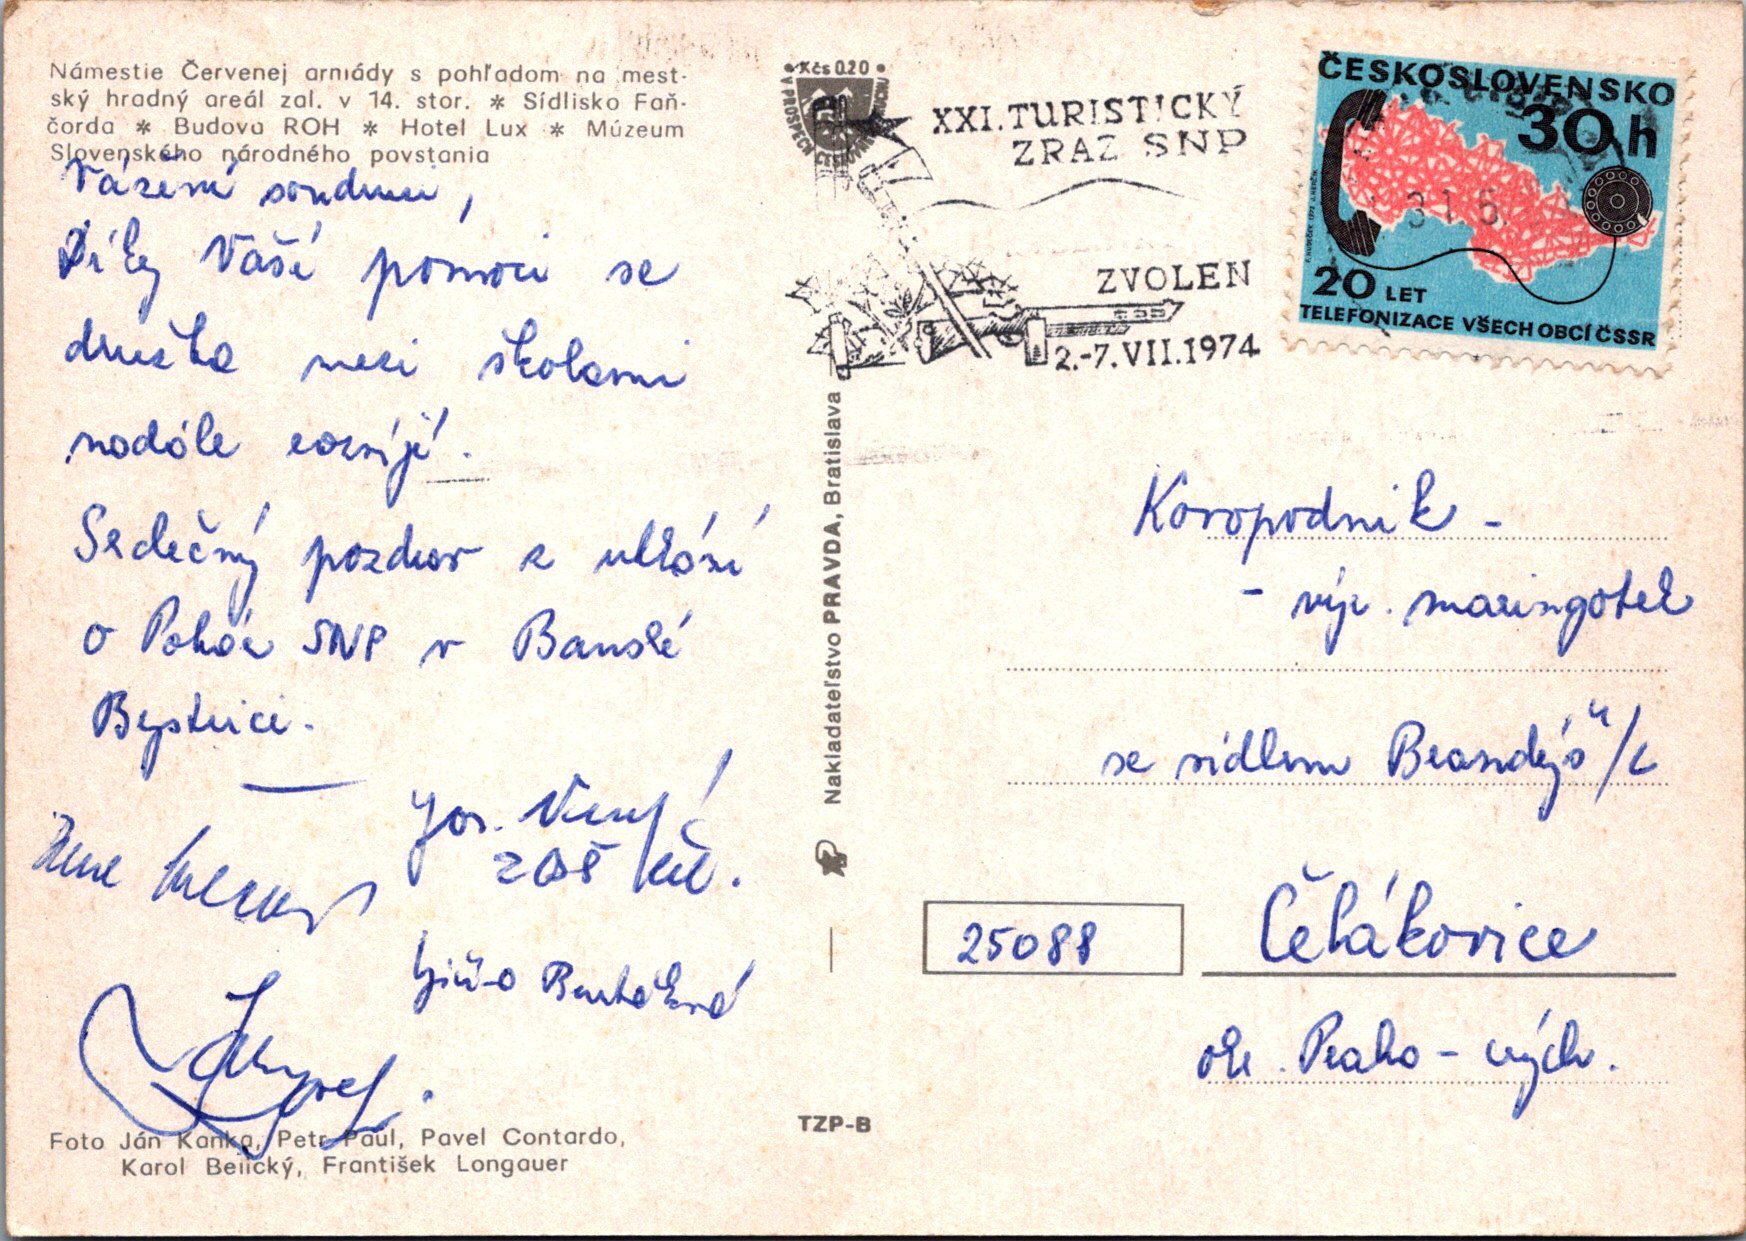 Námestie Červenej armády s pohľadom na mest-
ský hradný areál zal. v 14. stor. * Sídlisko Faň-
čorda * Budova ROH * Hotel Lux * Múzeum
Slovenského národného povstania
Vážení soudruzi,
Díky Vaší pomoci se
družba mezi školami
nadále rozvíjí.
Srdečný pozdrav z utkání
o Pohár SNP v Banské
Bystrici.
Jos.
ZDŠ
Kčs 0.20
V PROSPECH
XXI. TURISTICKÝ
ZRAZ SNP
ZVOLEN
2.-7. VII. 1974
ČESKOSLOVENSKO
30 h
31 5
20 LET
TELEFONIZACE VŠECH OBCÍ ČSSR
Nakladateľstvo PRAVDA, Bratislava
Kovopodnik -
- výr. maringotek
se sídlem Brandýs n/L
25088
Čelákovice
okr. Praha - vých.
TZP-B
Foto Ján Kanka, Petr Paul, Pavel Contardo,
Karol Belický, František Longauer